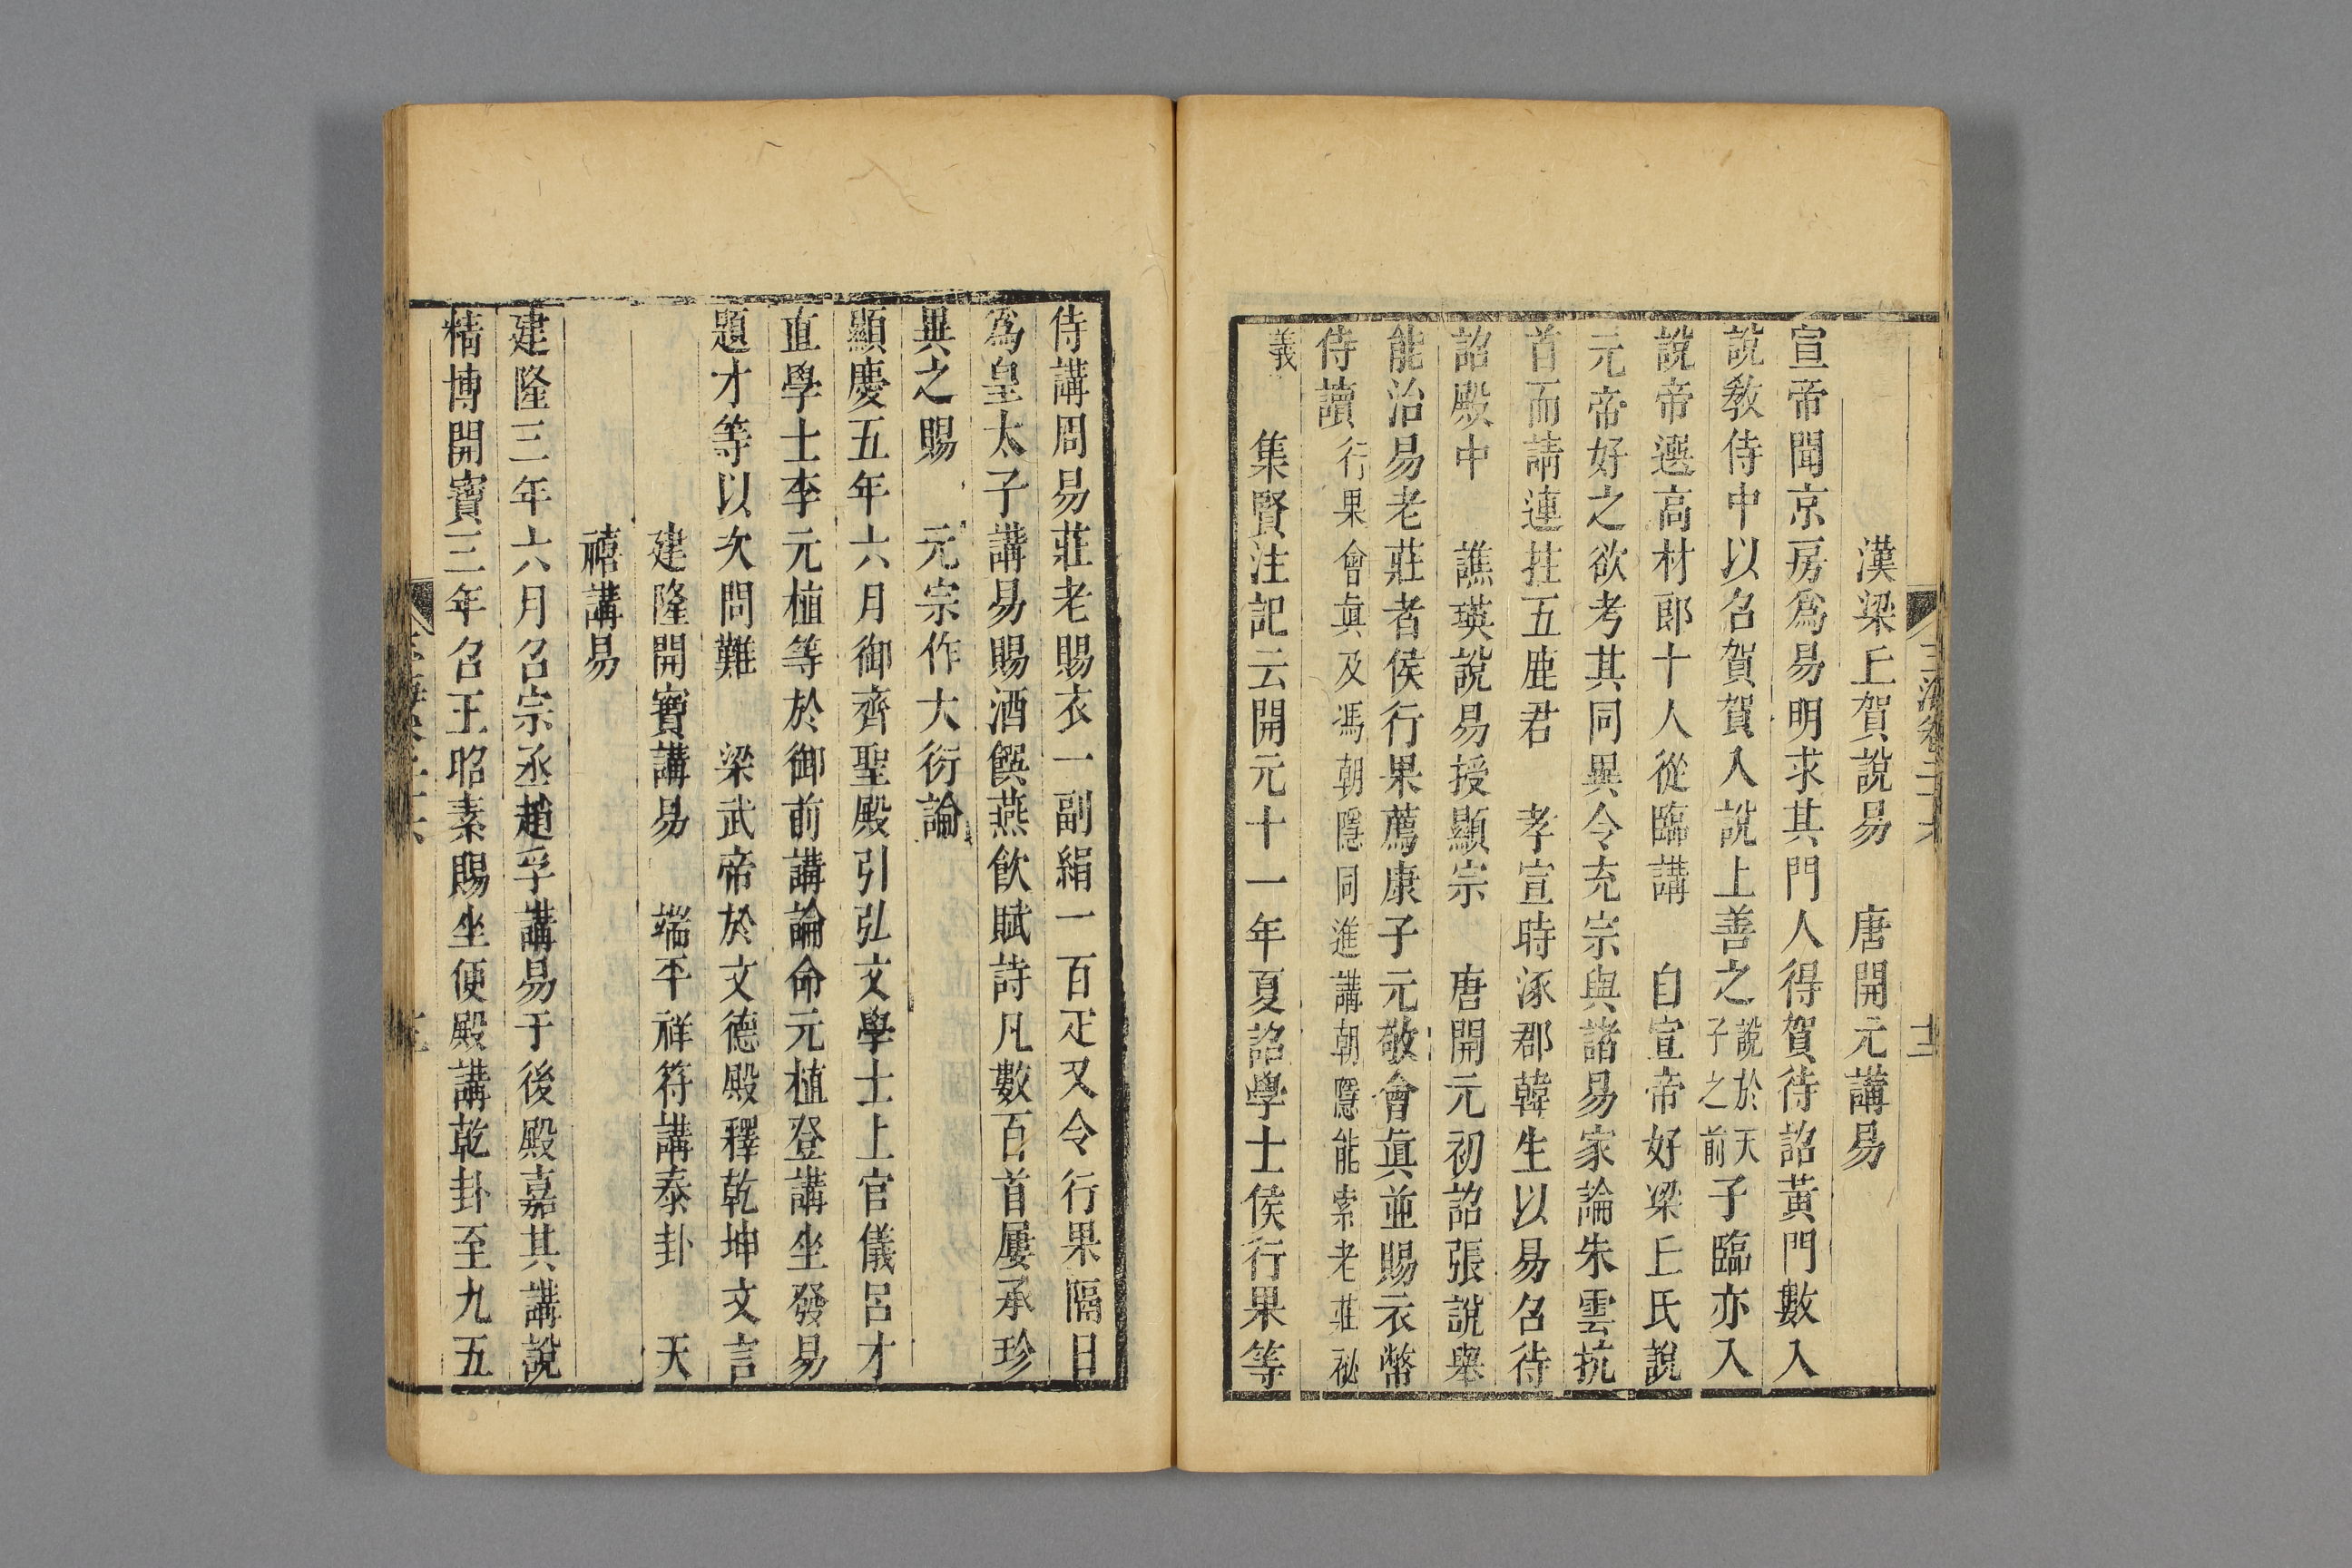 漢梁丘賀說易　唐開元講易
宣帝聞京房爲易明求其門人得賀待詔黃門數入
說敎侍中以名賀賀入說上善之說於天子之前子臨亦入
說帝選高材郎十人從臨講　自宣帝好梁丘氏說
元帝好之欲考其同異令充宗與諸易家論朱雲抗
首而請連拄五鹿君　孝宣時涿郡韓生以易名待
詔殿中　譙瑛說易授顯宗　唐開元初詔張說舉
能治易老莊者侯行果薦康子元敬會眞並賜衣幣
侍讀行果會眞及馮朝隱同進講朝隱能索老莊祕
義　集賢注記云開元十一年夏詔學士侯行果等
侍講周易莊老賜衣一副絹一百疋又令行果隔日
爲皇太子講易賜酒饌燕飮賦詩凡數百首屢承珍
異之賜　元宗作大衍論
顯慶五年六月御齊聖殿引弘文學士上官儀呂才
直學士李元植等於御前講論命元植登講坐發易
題才等以次問難　梁武帝於文德殿釋乾坤文言
建隆開寶講易　端平祥符講泰卦　天
禧講易
建隆三年六月召宗丞趙孚講易于後殿嘉其講說
精博開寶三年召王昭素賜坐便殿講乾卦至九五